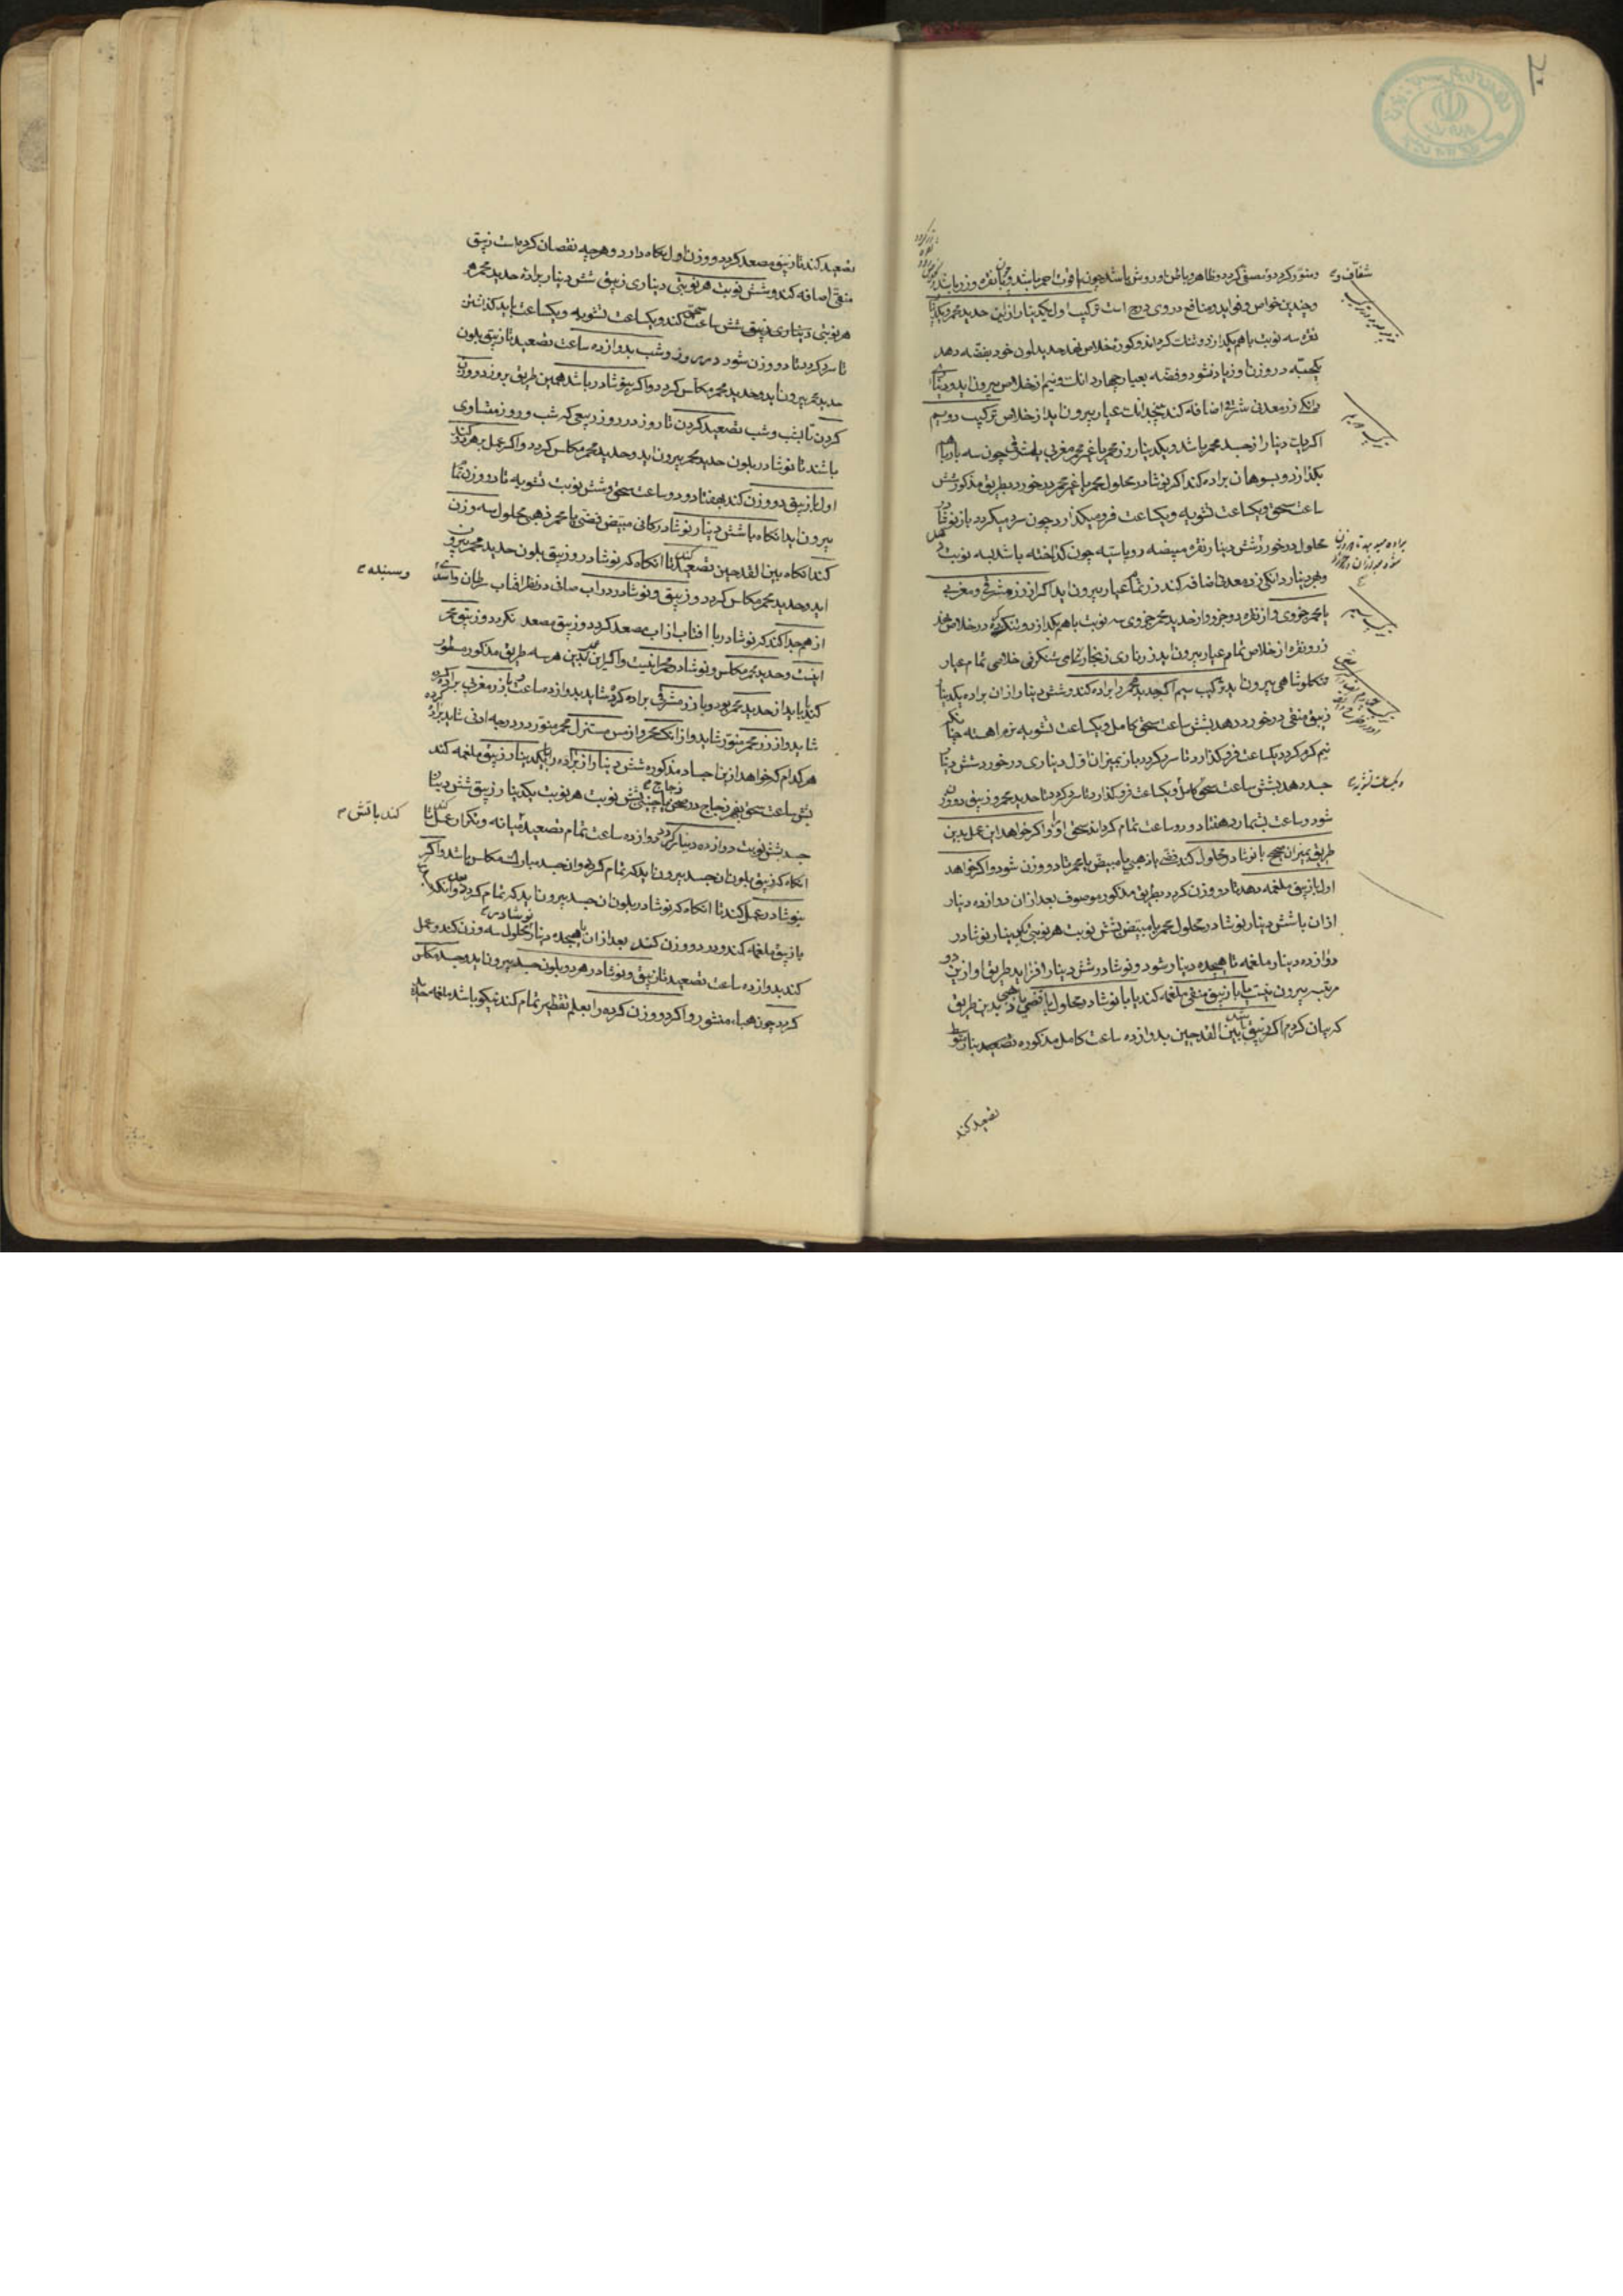 ۲۰
و منور کردد و مصفی کردد و ظاهر و باطن او روشن باشد چون یاقوت احمر باشد
و چندین خواص و فواید و منافع در وی درج است ترکیب اول یکدینار از این حدید محمر و یکدینار
نقره سه نوبت باهم بکدازد و در خلاص نهد حدید لون خود بفضه دهد
یکحبّه در وزن او زیاد نشود و فضه بعیار چهار دانک و نیم از خلاص بیرون آید و دینار
دانکی زر معدنی شرقی اضافه کند پنجدانک عیار بیرون آید از خلاص ترکیب دویم
اکر یک دینار از جسد محمر باشد و یکدینار زر محمر یا غیر محمر مغربی یا مشرقی چون سه بار باهم
بکدازد و بسوهان براده کند اکر نوشادر محلول محمر یا غیر محمر در خورد بطریق مذکور شش
ساعت سحق و یکساعت تشویه و یکساعت فرو میکذارد چون سرد میکردد باز نوشادر
محلول در خورد شش دینار نقره مبیضه روباسیه چون کداخته باشد بسه نوبت
و هر دینار دانکی زر معدنی اضافه کند زر تمام عیار بیرون آید اکر از زر مشرقی و مغربی
یا محمر جزوی و از نقره دو جزو و از حدید محمر جزوی سه نوبت باهم بکدازد
زر و نقره از خلاص تمام عیار بیرون آید زر ناری زنجار شامی شنکرفی خلاصی تمام عیار
منکلوشاهی بیرون آید ترکیب سیم اکر حدید محمر را براده کند و شش دینار از آن براده یکدینار
زیبق منقی در خورد دهد بشش ساعت سحق کامل و یکساعت تشویه نرم اهسته چنانکه
نیم کرم کردد یکساعت فرو کذارد تا سرد کردد باز بمیزان اول دیناری در خورد شش دینار
جسد دهد بشش ساعت سحق کامل و یکساعت فرو کذارد تا سرد کردد تا حدید محمر و زیبق دو وزن
شود و ساعت بشمار د هفتاد و دو ساعت تمام کرداند سحق او را و اکر خواهد این عمل بدین
طریق بمیزان صحیح با نوشادر محلول کند فضی یا ذهبی یا مبیض یا محمر تا دو وزن شود و اکر خواهد
اول با زیبق ملغمه دهد تا دو وزن کردد بطریق مذکور موصوف بعد از آن دوازده دینار
از آن با شش دینار نوشادر محلول محمر یا مبیض بشش نوبت هر نوبتی یکدینار نوشادر
دوازده دینار ملغمه تا هیجده دینار شود و نوشادر شش دینار افزاید طریق او از این دو
مرتبه بیرون نیست یا با زیبق منقی ملغمه کند یا با نوشادر محلول یا فضی یا ذهبی بدین طریق
که بیان کردم اکر زیبق باشد بین القدحین بدوازده ساعت کامل مذکوره تصعید بنار متوسط
تصعید کند
شفاف و
و یکساعت تشویه
تصعید کند تا زیبق مصعد کردد و وزن اول نکاه دارد و هر چه نقصان کرده است زیبق
منقی اضافه کند و شش نوبت هر نوبتی دیناری زیبق شش دینار براده حدید محمر
هر نوبتی دیناری زیبق شش ساعت سحق کند و یکساعت تشویه و یکساعت باید کذاشتن
تا سرد کردد تا دو وزن شود در سه روز و شب بدوازده ساعت تصعید تا زیبق بلون
حدید محمر بیرون آید و حدید محمر مکلس کردد و اکر بنوشادر باشد همین طریق بروز در وزن
کردن تا بشب و شب تصعید کردن تا روز در روز ربیعی که شب و روز متساوی
باشند تا نوشادر بلون حدید محمر بیرون آید و حدید محمر مکلس کردد و اکر عمل بر هر دو کند
اول با زیبق دو وزن کند بهفتاد و دو ساعت سحق و شش نوبت تشویه تا دو وزن تمام
بیرون آید انکاه با شش دینار نوشادر کانی مبیض فضی یا محمر ذهبی محلول سه وزن
کند انکاه بین القدحین تصعید کند تا انکاه که نوشادر و زیبق بلون حدید محمر بیرون
آید و حدید محمر مکلس کردد و زیبق و نوشادر در آب صافی در نظر افتاب سرطان و اسد
از هم جدا کند که نوشادر با افتاب از آب مصعد کردد و زیبق مصعد نکردد و زیبق محمر
اینست و حدید محمر مکلس و نوشادر محمر اینست و اکر این عمل بدین هر سه طریق مذکور مسطور
کند یا باید از حدید محمر بود و یا زر مشرقی براده کرده شاید بدوازده ساعت یا زر مغربی براده کرده
شاید و از زر محمر منور شاید و از انک محمر و از مس مستنزل محمر منور در درجه ادنی شاید براده
هر کدام که خواهد از این اجساد مذکوره شش دینار از براده با یکدینار زیبق ملغمه کند
بشش ساعت سحق بفهر زجاج در صحن زجاج بشش نوبت هر نوبت یکدینار زیبق شش دینار
جسد بشش نوبت دوازده دینار کردد دوازده ساعت تمام تصعید کند میانه و تکرار عمل تا
انکاه که زیبق بلون آن جسد بیرون آید که تمام کردد و آن جسد مبارک مکلس باشد و اکر
بنوشادر عمل کند تا انکاه که نوشادر بلون آن جسد بیرون آید که تمام کردد
با زیبق ملغمه کند و در دو وزن کند بعد از آن با هیجده دینار نوشادر محلول سه وزن کند و عمل
کند بدوازده ساعت تصعید تا زیبق و نوشادر هر دو بلون جسد بیرون آید و جسد مکلس
کردد چون هباء منثور و اکر دو وزن کرده را بعلم تقطیر تمام کند نیکو باشد ملغمه
و سنبله
کند باتش